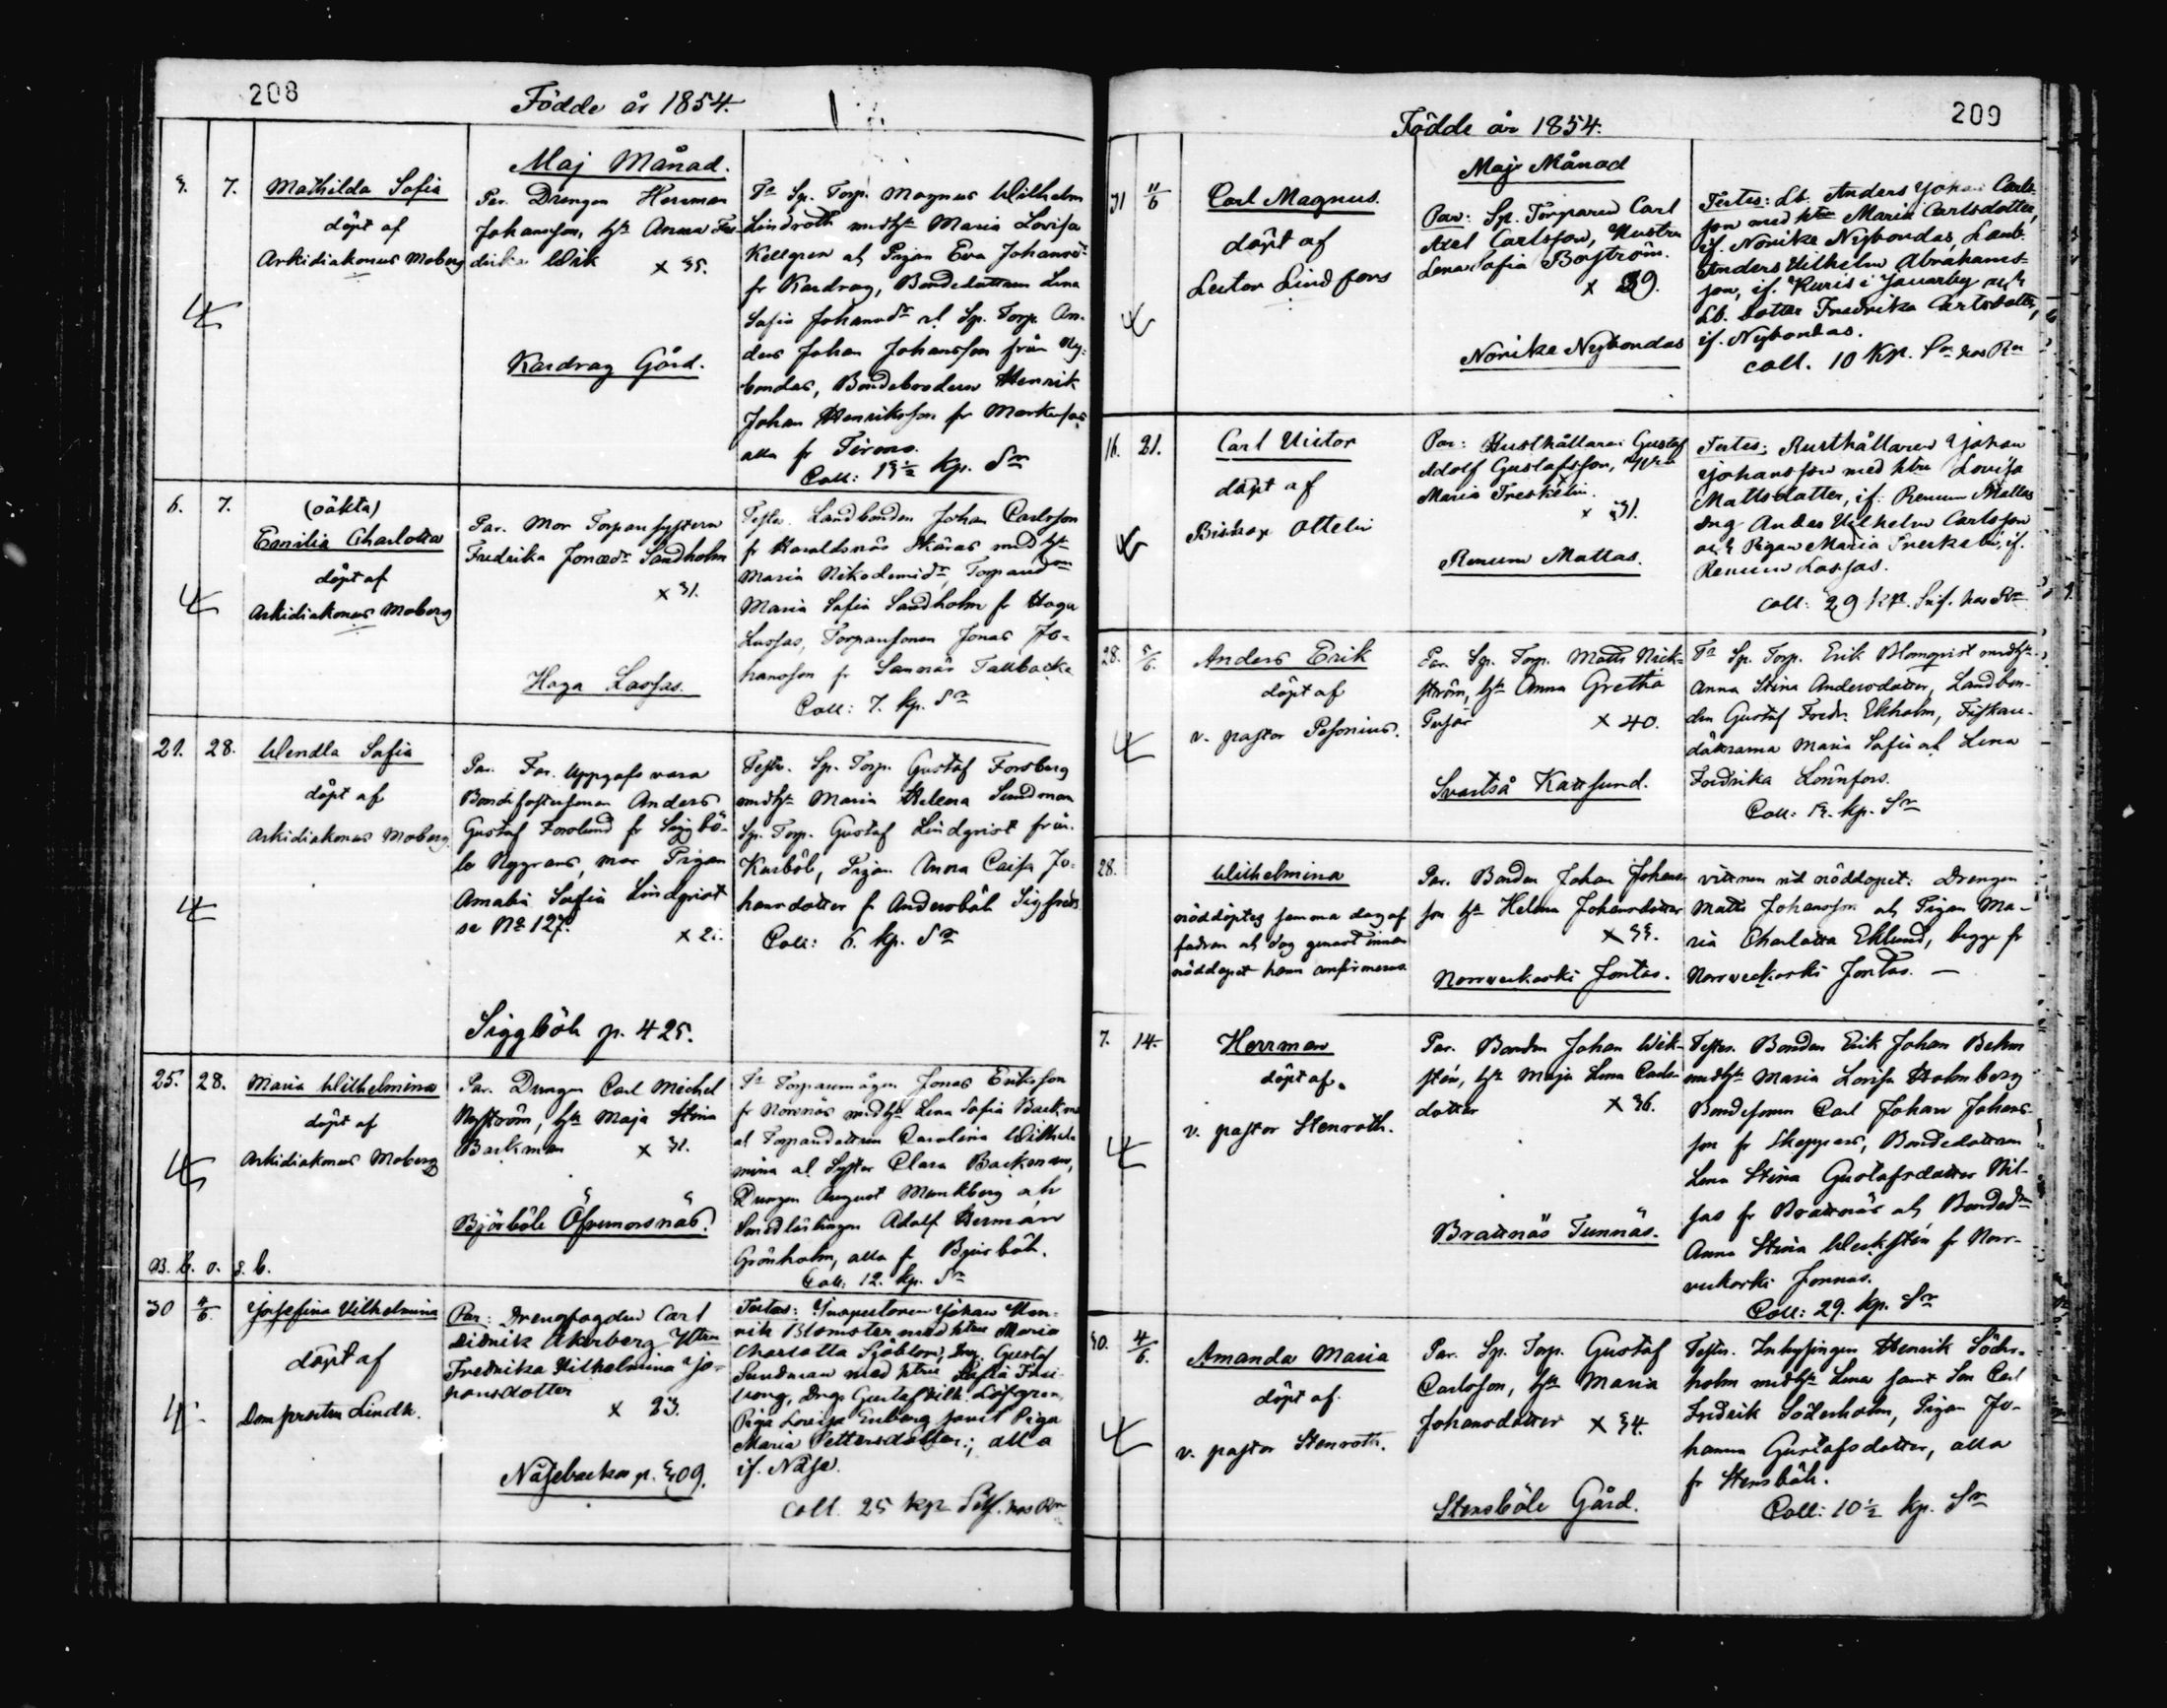 208
Födde år 1854.
Maj Månad.
3. 7. Mathilda Sofia
döpt af
Arkidiakonus Moberg
Par. Drengen Herman
Johansson, hst Anna Fre-
drika Wik x 35.
Kardrag Gård.
Ts Sp. Torp. Magnus Wilhelm
Lindroth med hst Maria Lovisa
Kellgren at Pigan Eva Johansdr
fr Kardrag, Bondedottren Lena
Sofia Johansdr at Sp. Torp. An-
ders Johan Johansson från Ny-
bondas, Bondebrodern Henrik
Johan Henriksson fr Markusas
alla fr Tirmo.
Coll: 13½ Kp. Sr
6. 7. (oäkta)
Emilia Charlotta
döpt af
Arkidiakonus Moberg
Par. Mor Torparesystern
Fredrika Jonædr Sandholm
x 31.
Haga Lassas.
Testes. Landbonden Johan Carlsson
fr Haraldsnäs Skäras med hst
Maria Nikodemidr, Torparedrn
Maria Sofia Sandholm fr Haga
Lassas, Torparesonen Jonas Jo-
hansson fr Sannäs Tallbacka
Coll: 7. Kp. Sr
21. 28. Wendla Sofia
döpt af
Arkidiakonus Moberg.
Par. Far. Uppgafs vara
Bondefostersonen Anders
Gustaf Forslund fr Siggbö-
le Nygrans, mor Pigan
Amalia Sofia Lindqvist
se No 127. x 2
Siggböle p. 425.
Testes. Sp. Torp. Gustaf Forsberg
med hst Maria Helena Sundman
Sp. Torp. Gustaf Lindqvist från
Kurböle, Pigan Anna Caisa Jo-
hansdotter fr Andersböle Sigfreds
Coll: 6. Kp. Sr
25. 28. Maria Wilhelmina
döpt af
Arkidiakonus Moberg
Par. Drengen Carl Michel
Nyström, hst Maja Stina
Backman x 31.
Björböle Öfvernorsnäs.
Ts Torparemågen Jonas Eriksson
fr Norsnäs med hst Lena Sofia Backman
at Torparedottren Carolina Wilhel-
mina at Syster Clara Backman,
Drengen August Munkberg och
Smedlärlingen Adolf Herman
Grönholm, alla fr Björböle.
Coll: 12. Kp. Sr
B. b. o. s. b.
30 4/6 Josefina Vilhelmina
döpt af
Domprosten Lindh.
Par: Drengfogden Carl
Didrik Åkerberg, Htrn
Fredrika Vilhelmina Jo-
hansdotter
x 23.
Näsebacka p. 309.
Testes: Inspectoren Johan Hen-
rik Blomster med htrn Maria
Charlotta Sjöblom, Drg. Gustaf
Sundman med htrn Sofia
Dreng Gustaf Vilh. Löfgren,
Piga Lovisa Enberg samt Piga
Maria Pettersdotter; alla
if. Näse.
Coll. 25 Kp Silf. hos Rn
209
Födde år 1854.
Maj Månad
31 11/6 Carl Magnus.
döpt af
Lector Lindfors
Par: Sp. Torparen Carl
Axel Carlsson, Hustru
Lena Sofia Boström.
x 39.
Norike Nybondas
Testes: Lb. Anders Johan Carls-
son med htrn Maria Carlsdotter,
if. Norike Nybondas, Landb.
Anders Vilhelm Abrahams-
son, if. Kuris i Jauarby och
Lb. dotter Fredrika Carlsdotter,
if. Nybondas.
Coll. 10 Kp. Sr hos Rn
16. 21. Carl Victor
döpt af
Biskop Ottelin
Par: Rusthållaren Gustaf
Adolf Gustafsson, Htrn
Maria Treskelin.
x 31.
Renum Mattas.
Testes: Rusthållaren Johan
Johansson med htru Lovisa
Mattsdotter, if. Renum Mattas
Drg Anders Vilhelm Carlsson
och Pigan Maria Treskelin, if.
Renum Lassas.
Coll: 29 Kp. Silf. hos Rn
28. 5/6. Anders Erik
döpt af
v. pastor Pesonius.
Par. Sp. Torp. Matts Nick-
ström, hst Anna Gretha
x 40.
Svartså Kattsund.
Ts Sp. Torp. Erik Blomqvist med hst
Anna Stina Andersdotter, Landbon-
den Gustaf Fredr. Ekholm, Fiskare-
döttrarna Maria Sofia at Lena
Fredrika Lönnfors.
Coll: 13. Kp. Sr
28. Wilhelmina
nöddöptes samma dag af
fadren at dog genast innan
nöddopet hann confirmeras.
Par. Bonden Johan Johans-
son hst Helena Johansdotter
x 33.
Norrveckoski Jontas.
vittnen vid nöddopet: Drengen
Matts Johansson at Pigan Ma-
ria Charlotta Eklund, begge fr
Norrveckoski Jontas. —
7. 14. Herrman
döpt af
v. pastor Stenroth.
Par. Bonden Johan Wek-
stén, hst Maja Lena Carls-
dotter x 36.
Brattnäs Tunnäs.
Testes. Bonden Erik Johan Behm
med hst Maria Lovisa Holmberg
Bondesonen Carl Johan Johans-
son fr Skeppars, Bondedottren
Lena Stina Gustafsdotter Nil-
sas fr Brattnäs at Bondedrn
Anna Stina Weckstén fr Norr-
veckoski Jonnas.
Coll: 29. Kp. Sr
30. 4/6. Amanda Maria
döpt af
v. pastor Stenroth.
Par. Sp. Torp. Gustaf
Carlsson, hst Maria
Johansdotter x 34.
Stensböle Gård.
Testes. Inhysingen Henrik Söder-
holm med hst Lena samt Son Carl
Fredrik Söderholm, Pigan Jo-
hanna Gustafsdotter, alla
fr Stensböle.
Coll: 10½ Kp. Sr